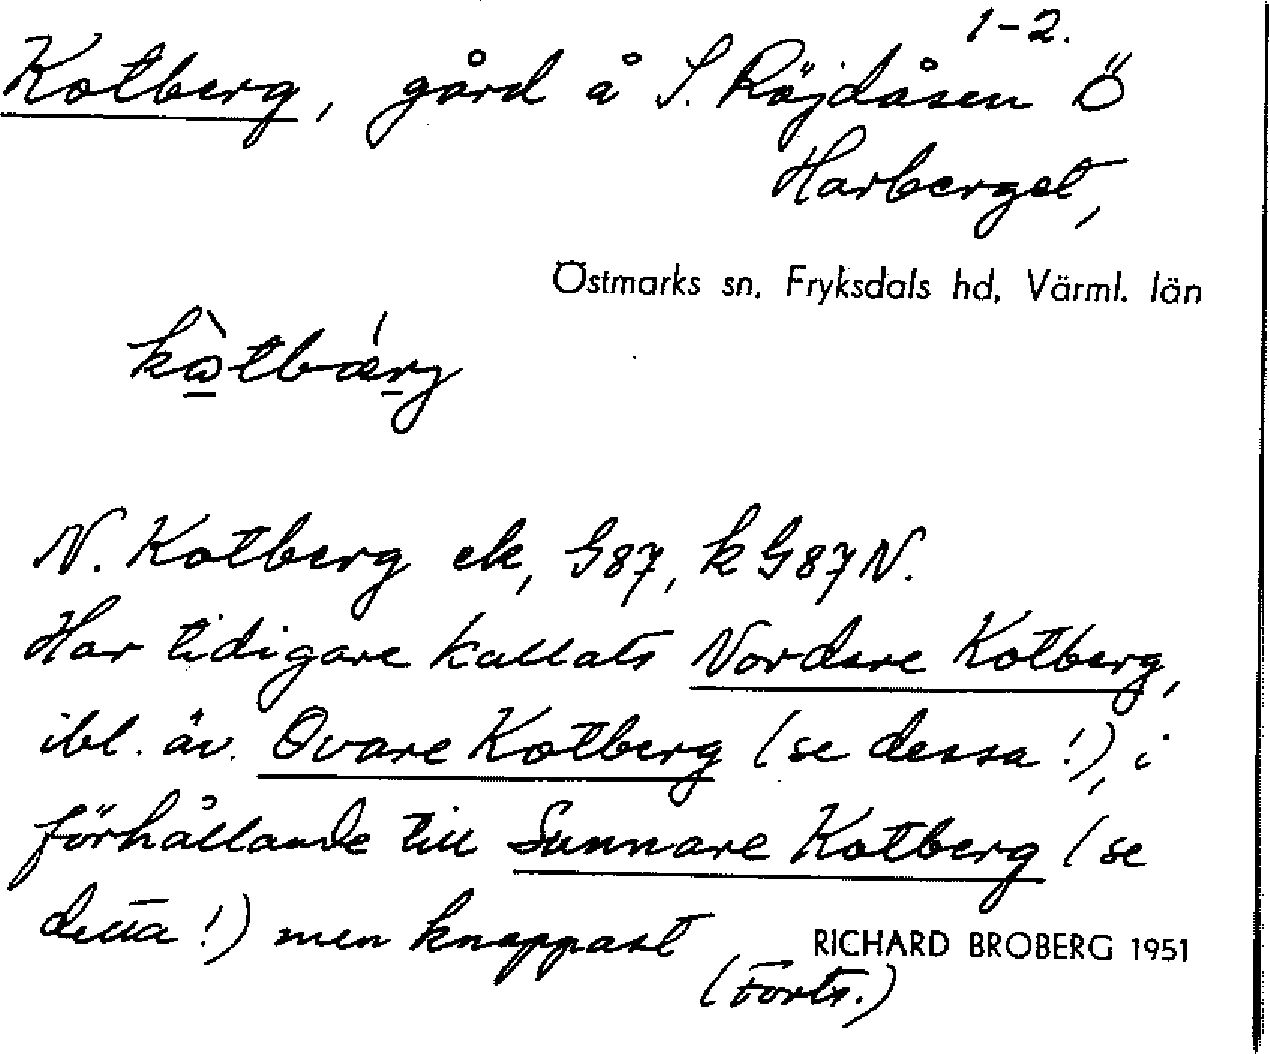 1-2.
Kotberg, gård å S. Röjdåsen Ö
Harberget,
Östmarks sn, Fryksdals hd, Värml. län
N. Kotberg ek, G87, k G87 N.
Har tidigare kallats Nordere Kotberg,
ibl. äv. Ovare Kotberg (se dessa!), i
förhållande till Sunnare Kotberg (se
detta!) men knappast
RICHARD BROBERG 1951
(Forts.)